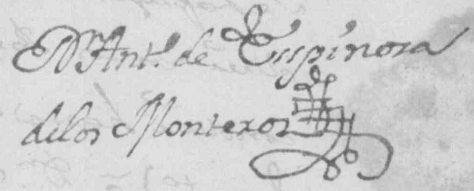 Dr Anto. de Espinosa
delos Monteros